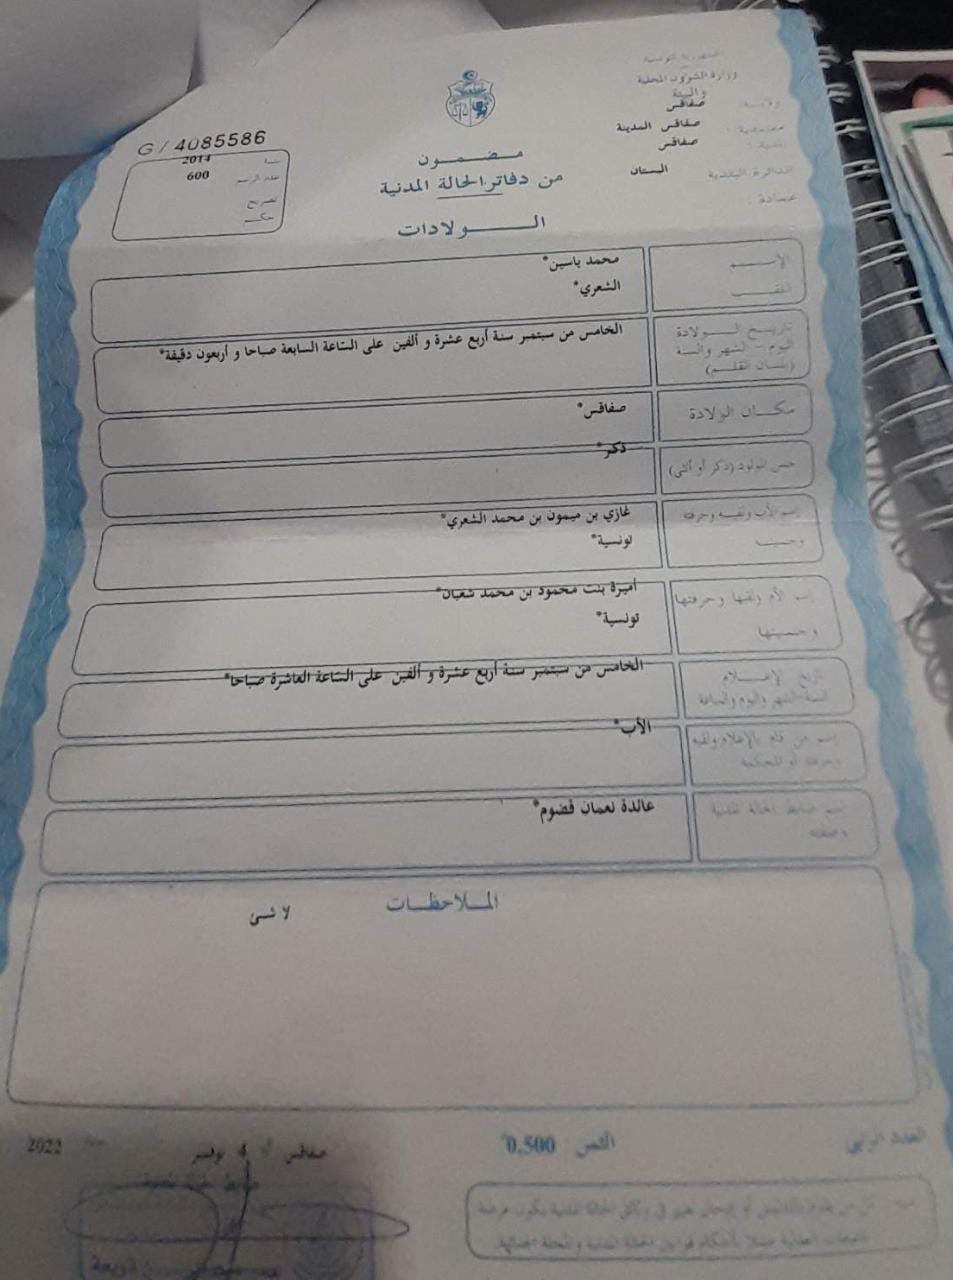 الجمهورية التونسية
وزارة الشؤون المحلية
والبيئة
ولاية: صفاقس
معتمدية: صفاقس المدينة
بلدية: صفاقس
الدائرة البلدية البستان
عمادة:
G / 4085586
سنة 2014
عدد الرسم 600
تصريح
حكم
مضمون
من دفاتر الحالة المدنية
الولادات
الإسم محمد ياسين*
اللقب الشعري*
تاريخ الولادة الخامس من سبتمبر سنة أربع عشرة و ألفين على الساعة السابعة صباحا و أربعون دقيقة*
اليوم - الشهر والسنة
(بلسان القلم)
مكان الولادة صفاقس*
جنس المولود (ذكر أو أنثى) ذكر*
إسم الأب ولقبه وحرفته غازي بن ميمون بن محمد الشعري*
وجنسيته تونسية*
إسم الأم ولقبها وحرفتها أميرة بنت محمود بن محمد شعبان*
وجنسيتها تونسية*
تاريخ الإعلام الخامس من سبتمبر سنة أربع عشرة و ألفين على الساعة العاشرة صباحا*
السنة الشهر واليوم والساعة
إسم من قام بالإعلام ولقبه الأب*
وحرفته أو المحكمة
إسم ضابط الحالة المدنية عالدة نعمان قضوم*
وصفته
الملاحظات
لا شئ
العدد الرتبي
الثمن : 0.500
صفاقس 4 نوفمبر سنة 2022
ضابط الحالة المدنية
كل من يقوم بالتدليس أو إدخال تغيير في وثائق الحالة المدنية يكون عرضة
للتتبعات العدلية عملا بأحكام قوانين الحالة المدنية والمجلة الجزائية.